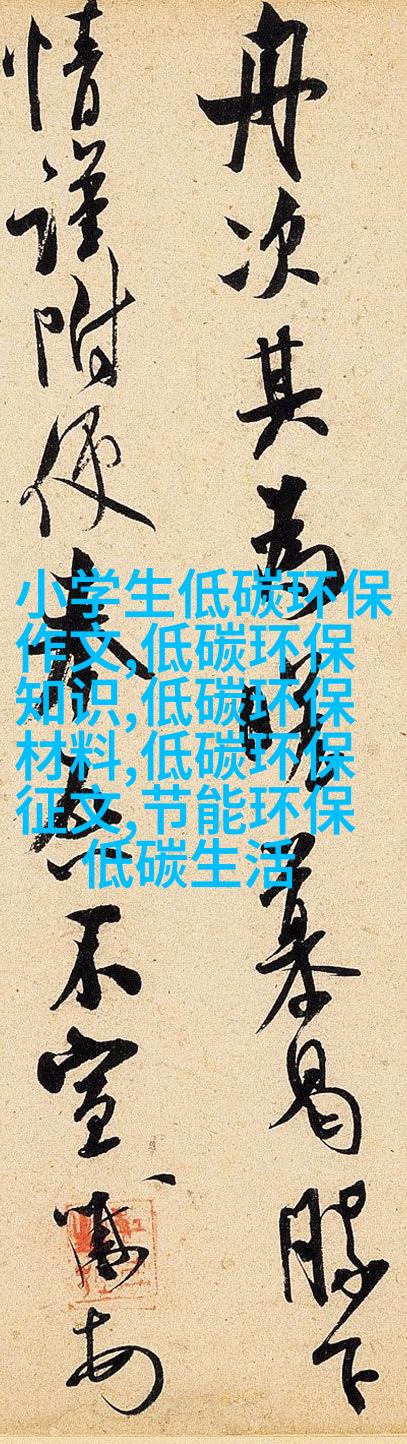 舟次其為慕曷勝下
情謹附奉不宣
小学生低碳环保
作文,低碳环保
知识,低碳环保
材料,低碳环保
征文,节能环保
低碳生活